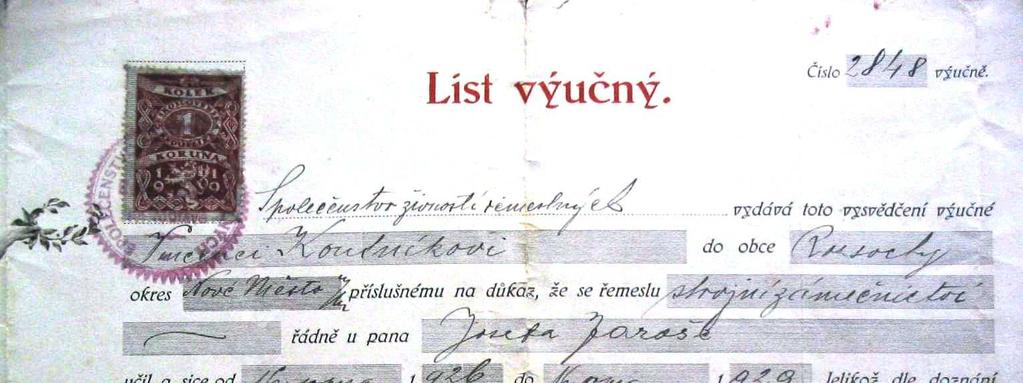 Číslo 2848 výučné.
List výučný.
KOLEK
1
KORUNA
Společenstvo živností řemeslných vydává toto vysvědčení výučné
Vincenci Koutníkovi do obce Rosochy
okres Nové Město příslušnému na důkaz, že se řemeslu strojnizámečnictví
řádně u pana Josefa Jaroše
učil a sice od 1926 do 1929 Jelikož dle doznání